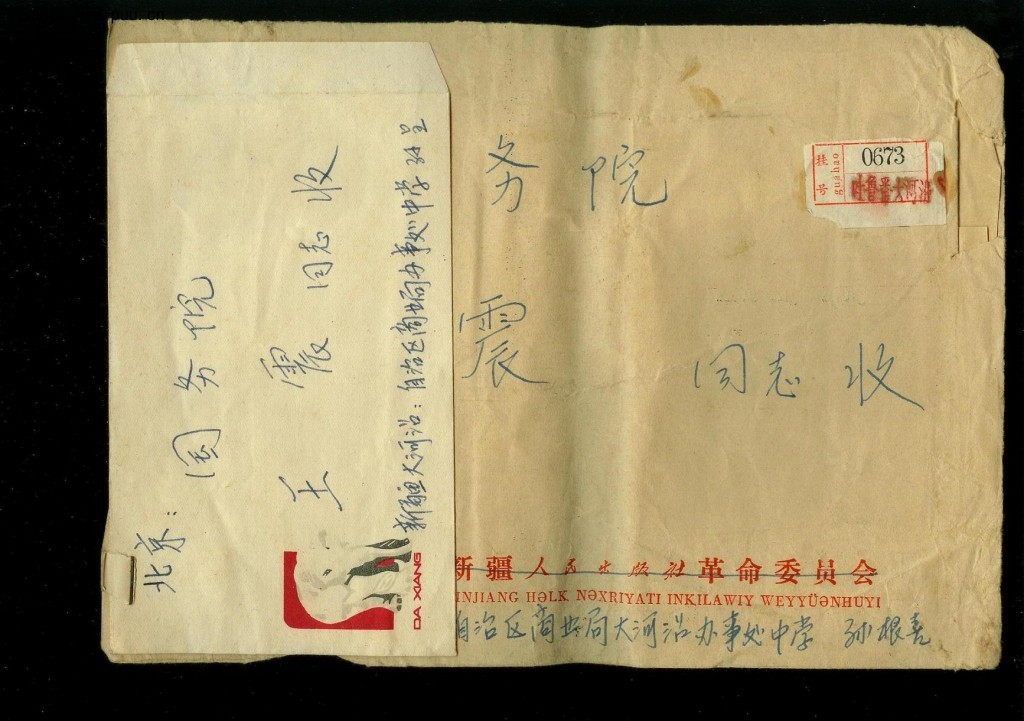 北京:
国务院
王震同志收
新疆大河沿:自治区商业局办事处中学 孙呈
DA XIANG
务院
震
同志收
挂号
guahao
0673
吐鲁番大河沿
新疆人民出版社革命委员会
INJIANG HƏLK NƏXRIYATI INKILAWIY WEYYÜƏNHUYI
自治区商业局大河沿办事处中学 孙根喜